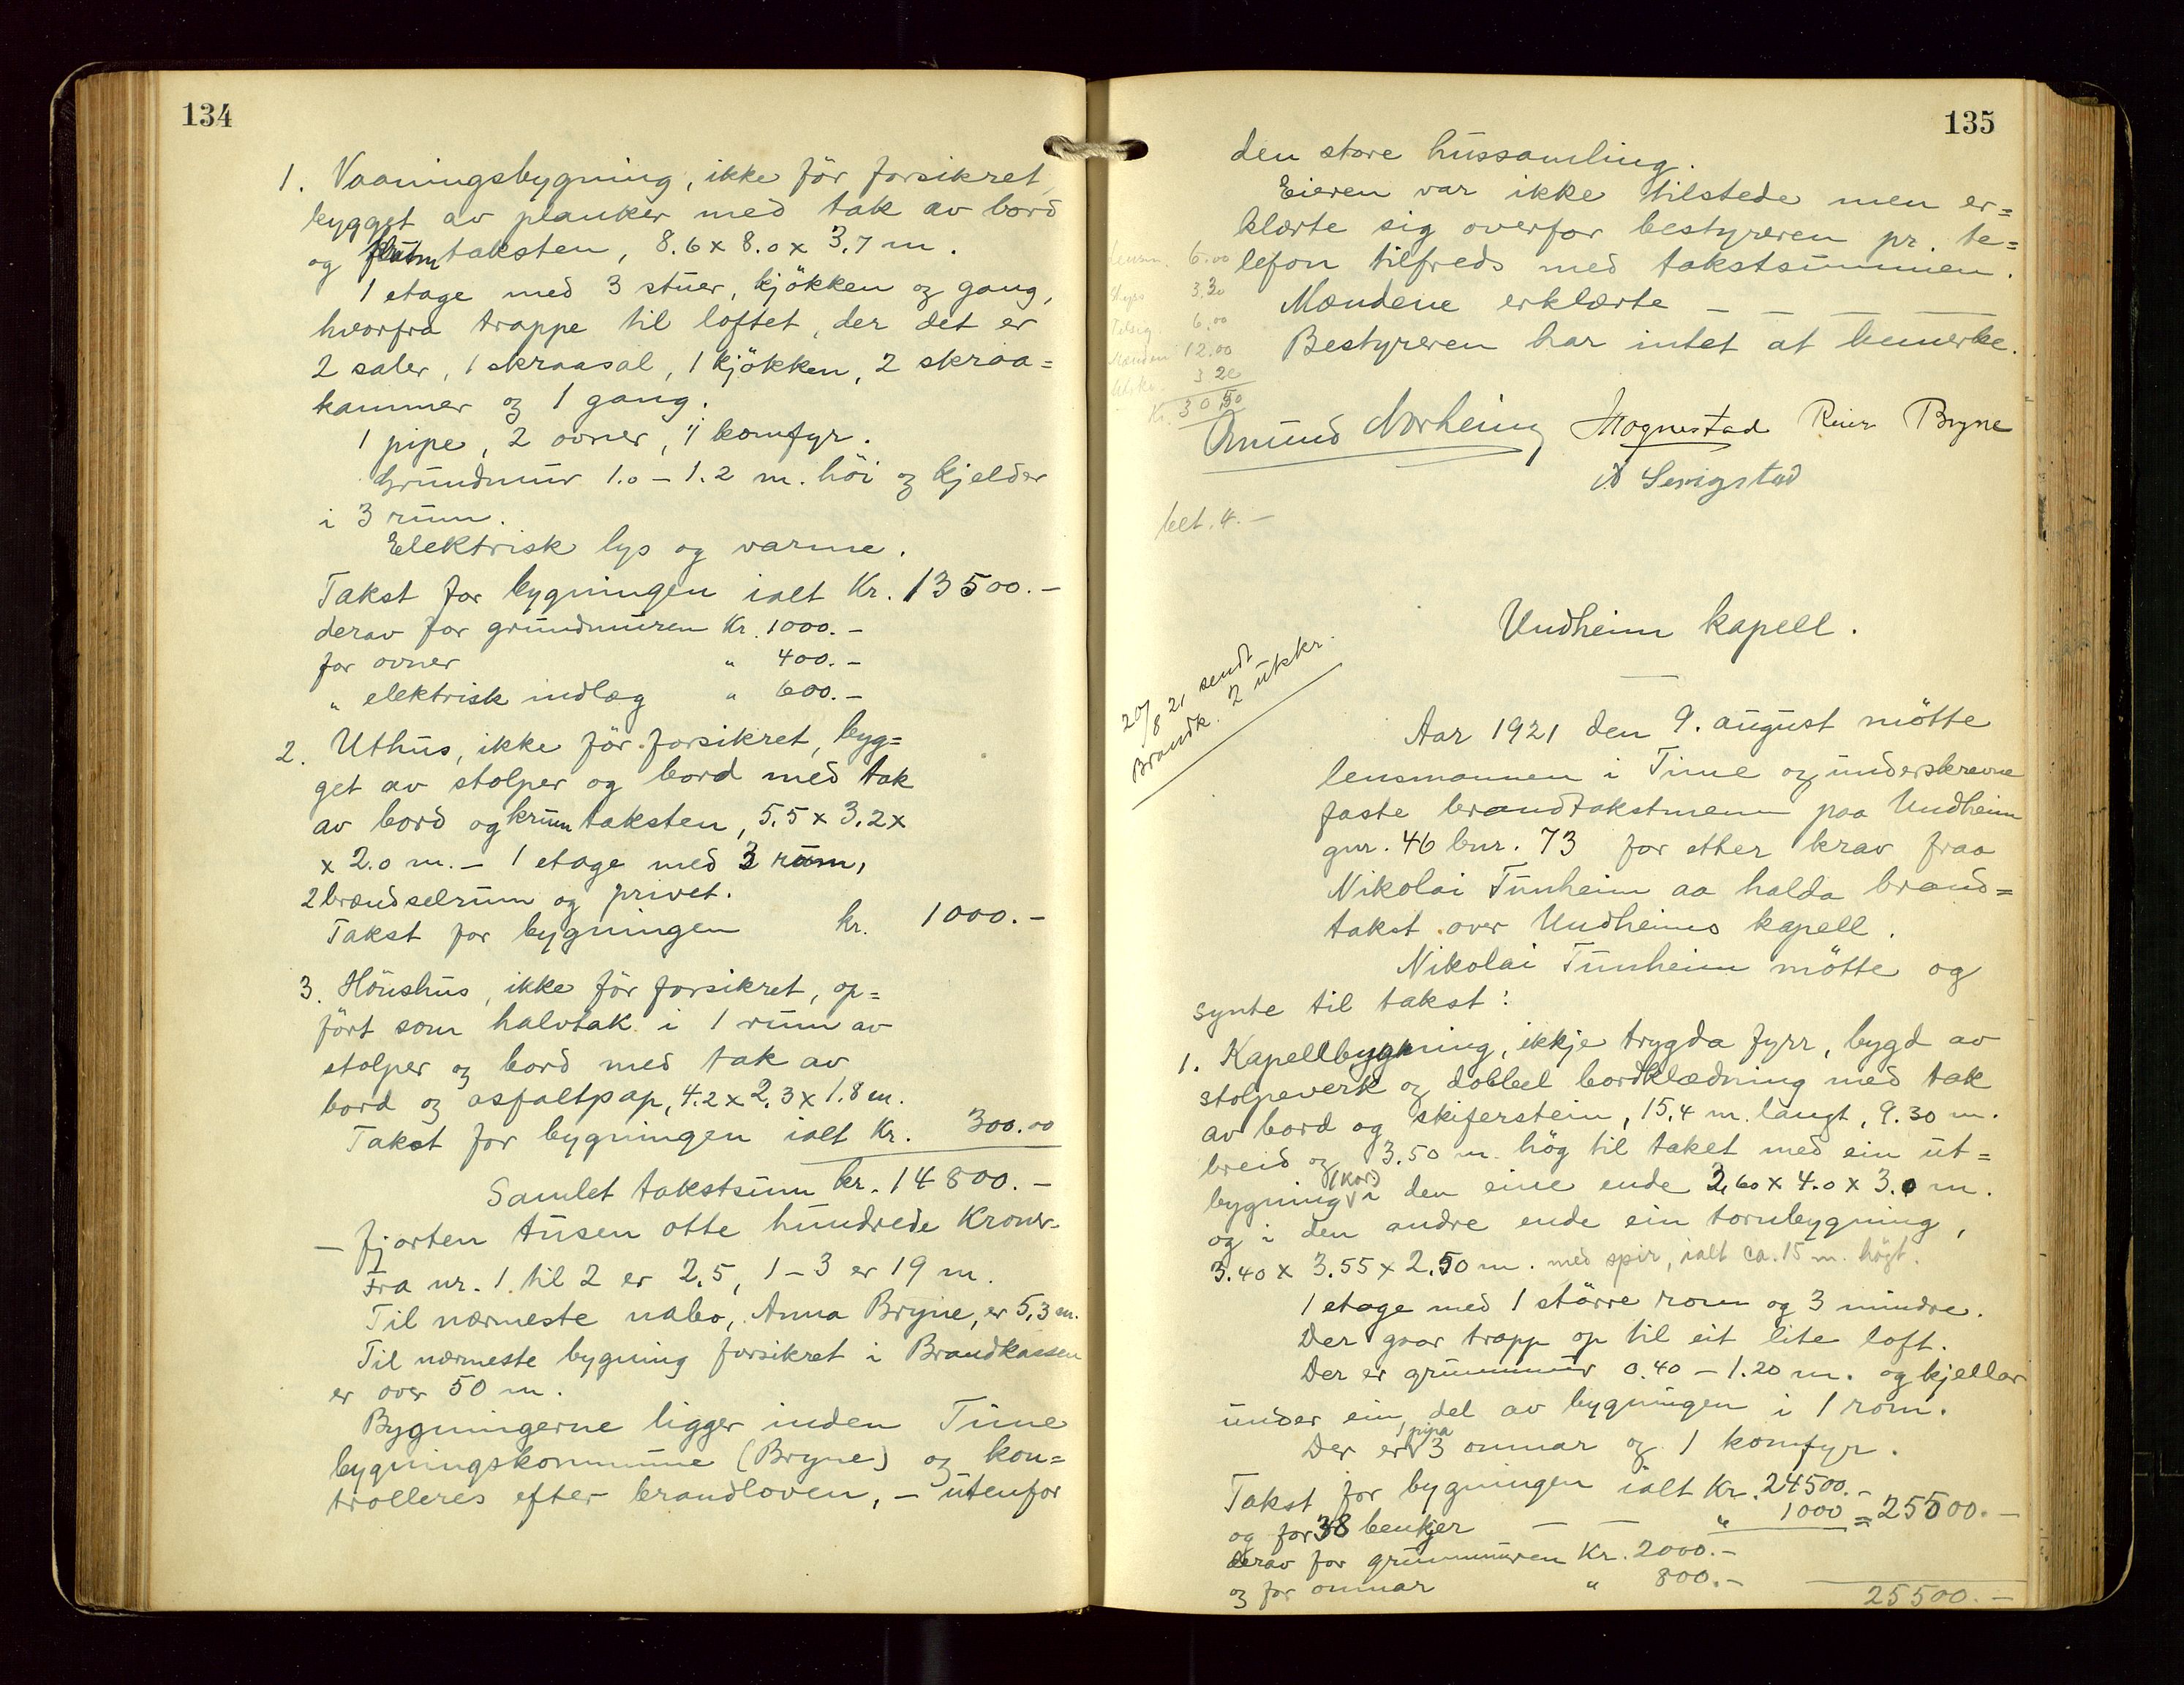 134
1. Vaaningsbygning, ikke för forsikret,
bygget av planker med tak av bord
og krum taksten, 8.6 x 8.0 x 3.7 m.
1 etage med 3 stuer, kjökken og gang,
hvorfra trappe til loftet, der det er
2 saler, 1 skraasal, 1 kjökken, 2 skraa=
kammer og 1 gang.
1 pipe, 2 ovner, 1 komfyr.
Grundmur 1.0 - 1.2 m. höi og kjelder
i 3 rum.
Elektrisk lys og varme.
Takst for bygningen ialt Kr. 13500.-
derav for grundmuren Kr. 1000.-
for ovner " 400.-
" elektrisk indlæg " 600.-
2. Uthus, ikke för forsikret, byg=
get av stolper og bord med tak
av bord og krum taksten, 5.5 x 3.2 x
x 2.0 m. - 1 etage med 3 rum,
2 brændselrum og privet.
Takst for bygningen kr. 1000.-
3. Hönshus, ikke för forsikret, op=
fört som halvtak i 1 rum av
stolper og bord med tak av
bord og asfaltpap, 4.2 x 2.3 x 1.8 m.
Takst for bygningen ialt Kr. 300.00
Samlet takstsum kr. 14800.-
- fjorten tusen otte hundrede Kroner-
Fra nr. 1 til 2 er 2,5, 1-3 er 19 m.
Til nærmeste nabo, Anna Bryne, er 5,3 m.
Til nærmeste bygning forsikret i Brandkassen
er over 50 m.
Bygningerne ligger inden Time
bygningskommune (Bryne) og kon=
trolleres efter brandloven, - utenfor
135
den store hussamling.
Eieren var ikke tilstede men er=
klærte sig overfor bestyreren pr. te=
lefon tilfreds med takstsummen.
Mændene erklærte - - - -
Bestyreren har intet at bemerke.
Lensm. 6.00
Skyss 3.30
6.00
Mænden 12.00
3 20
Kr. 30.50
Omund Norheim Hognestad Reier Bryne
Serigstad
bet. 4.-
Undheim kapell.
20/8 21 sendt
Brandk. 2 utkr.
Aar 1921 den 9. august mötte
lensmannen i Time og underskrevne
faste brandtakstmenn paa Undheim
gnr. 46 bnr. 73 for etter krav fraa
Nikolai Tunheim aa halda brand=
takst over Undheims kapell.
Nikolai Tunheim mötte og
synte til takst:
1. Kapellbygning, ikkje trygda fyrr, bygd av
stolpeverk og dobbel bordklædning med tak
av bord og skiferstein, 15.4 m. langt, 9.30 m.
breid og 3.50 m. hög til taket med ein ut=
bygning (Kor) i den eine ende 3,60 x 4.0 x 3.0 m.
og i den andre ende ein tornbygning,
3.40 x 3.55 x 2.50 m. med spir, ialt ca. 15 m. högt.
1 etage med 1 större rom og 3 mindre.
Der gaar trapp op til eit lite loft.
Der er grunnmur 0.40 - 1.20 m. og kjellar
under ein del av bygningen i 1 rom.
Der er 1 pipa 3 omnar og 1 komfyr.
Takst for bygningen ialt Kr. 24500.-
og for 38 benkjer - - " 1000 = 25500.-
derav for grunnmuren Kr. 2000.-
og for omnar " 800.-
25500.-